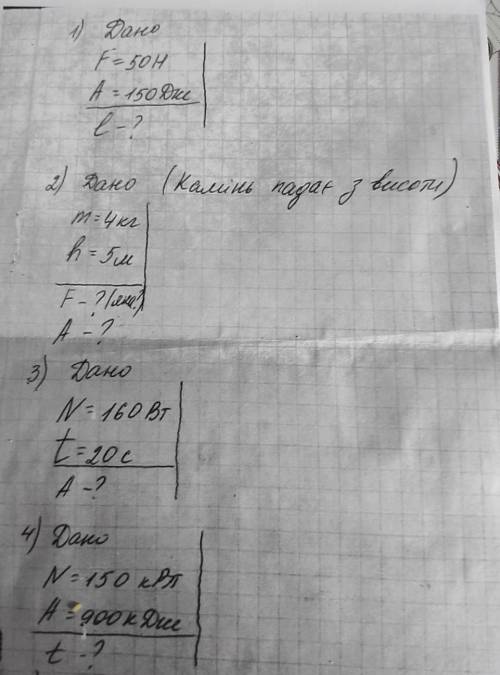 1) Дано
F = 50Н
A = 150Дж
l - ?
2) Дано (Камінь падає з висоти)
m = 4кг
h = 5м
F - ? (яка?)
A - ?
3) Дано
N = 160Вт
t = 20с
A - ?
4) Дано
N = 150 кВт
A = 900кДж
t - ?